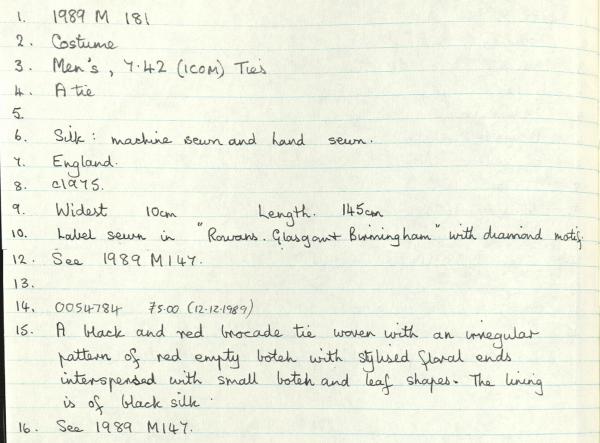 1. 1989 M 181
2. Costume
3. Men's, 7.42 (ICOM) Ties
4. A tie
5.
6. Silk: machine sewn and hand sewn.
7. England.
8. c1975.
9. Widest 10cm Length. 145cm
10. Label sewn in "Rowans. Glasgow & Birmingham" with diamond motif.
12. See 1989 M147.
13.
14. 0054784 75.00 (12.12.1989)
15. A black and red brocade tie woven with an irregular
pattern of red empty boteh with stylised floral ends
interspersed with small boteh and leaf shapes. The lining
is of black silk.
16. See 1989 M147.